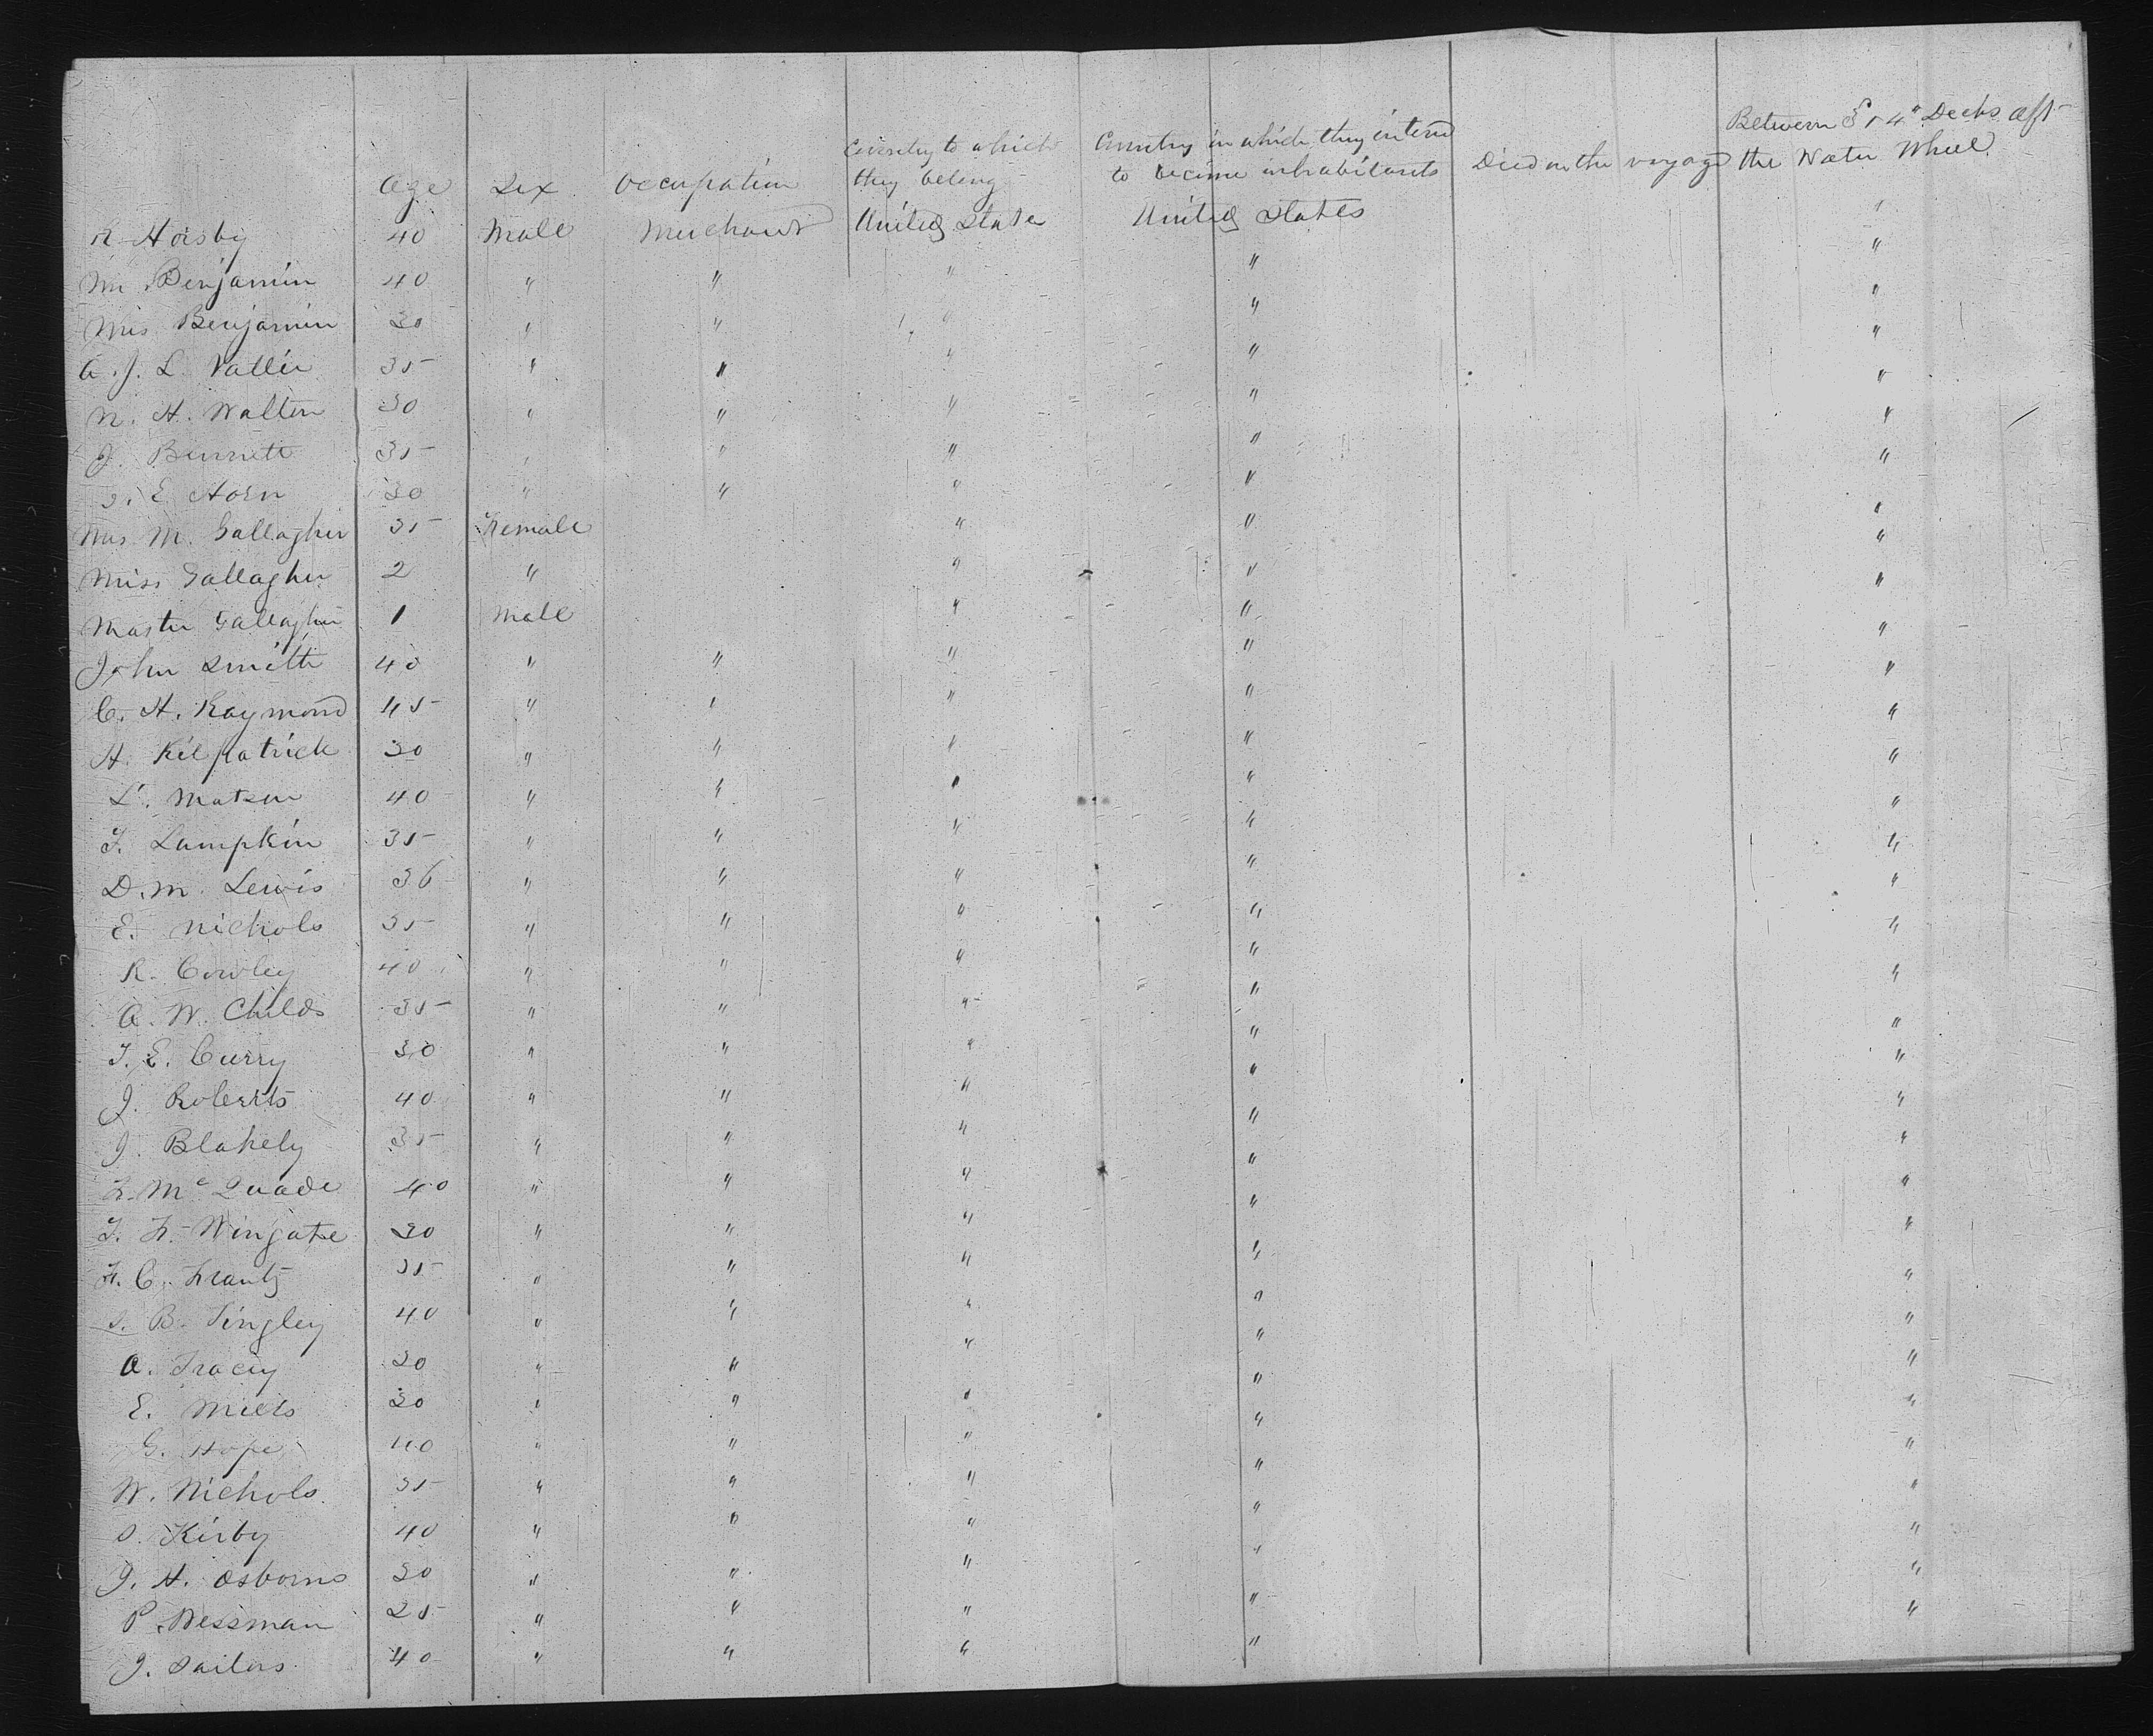 Age Sex Occupation Country to which they belong Country in which they intend to become inhabitants Died on the voyage Between 3 & 4" Decks aft the Water Wheel
R Hoisby 40 Male Merchant United States United States "
Mr Benjamin 40 " " " " "
Mrs Benjamin 30 " " " " "
A. J. L. Vallie 35 " " " " "
N. H. Walton 30 " " " " "
J. Bennett 35 " " " " "
E Horn 30 " " " " "
Mrs M. Gallagher 35 Female " " "
Miss Gallagher 2 " " " "
Master Gallagher 1 Male " " "
John Smith 40 " " " " "
C. H. Raymond 45 " " " " "
H. Kilpatrick 30 " " " " "
L. Matson 40 " " " " "
T. Lampkin 35 " " " " "
D. M. Lewis 36 " " " " "
E. Nichols 35 " " " " "
R. Cowley 40 " " " " "
A. W. Childs 35 " " " " "
T. E. Curry 30 " " " " "
J. Roberts 40 " " " " "
J. Blakely 35 " " " " "
F. Mc Quade 40 " " " " "
T. F. Wingate 30 " " " " "
F. C. Frantz 35 " " " " "
B. Tingley 40 " " " " "
A. Tracey 30 " " " " "
E. Mills 30 " " " " "
G. Hope 40 " " " " "
W. Nichols 35 " " " " "
S. Kirby 40 " " " " "
J. H. Osborne 30 " " " " "
P. Wessman 25 " " " " "
J. Sailors 40 " " " "